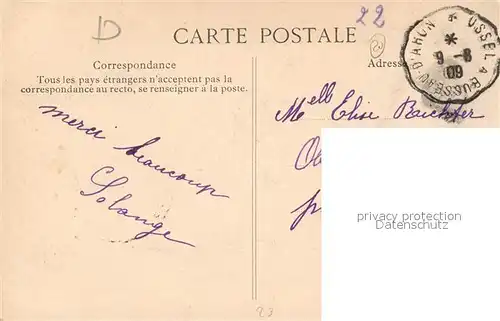 D
22
CARTE POSTALE
USSEL A BUSSEAU-D'AHUN
*
9-8
09
Correspondance
Adresse
Tous les pays étrangers n'acceptent pas la
correspondance au recto, se renseigner à la poste.
Melle Elise
merci beaucoup
Solange
privacy protection
AnkAnkAnk.com
23